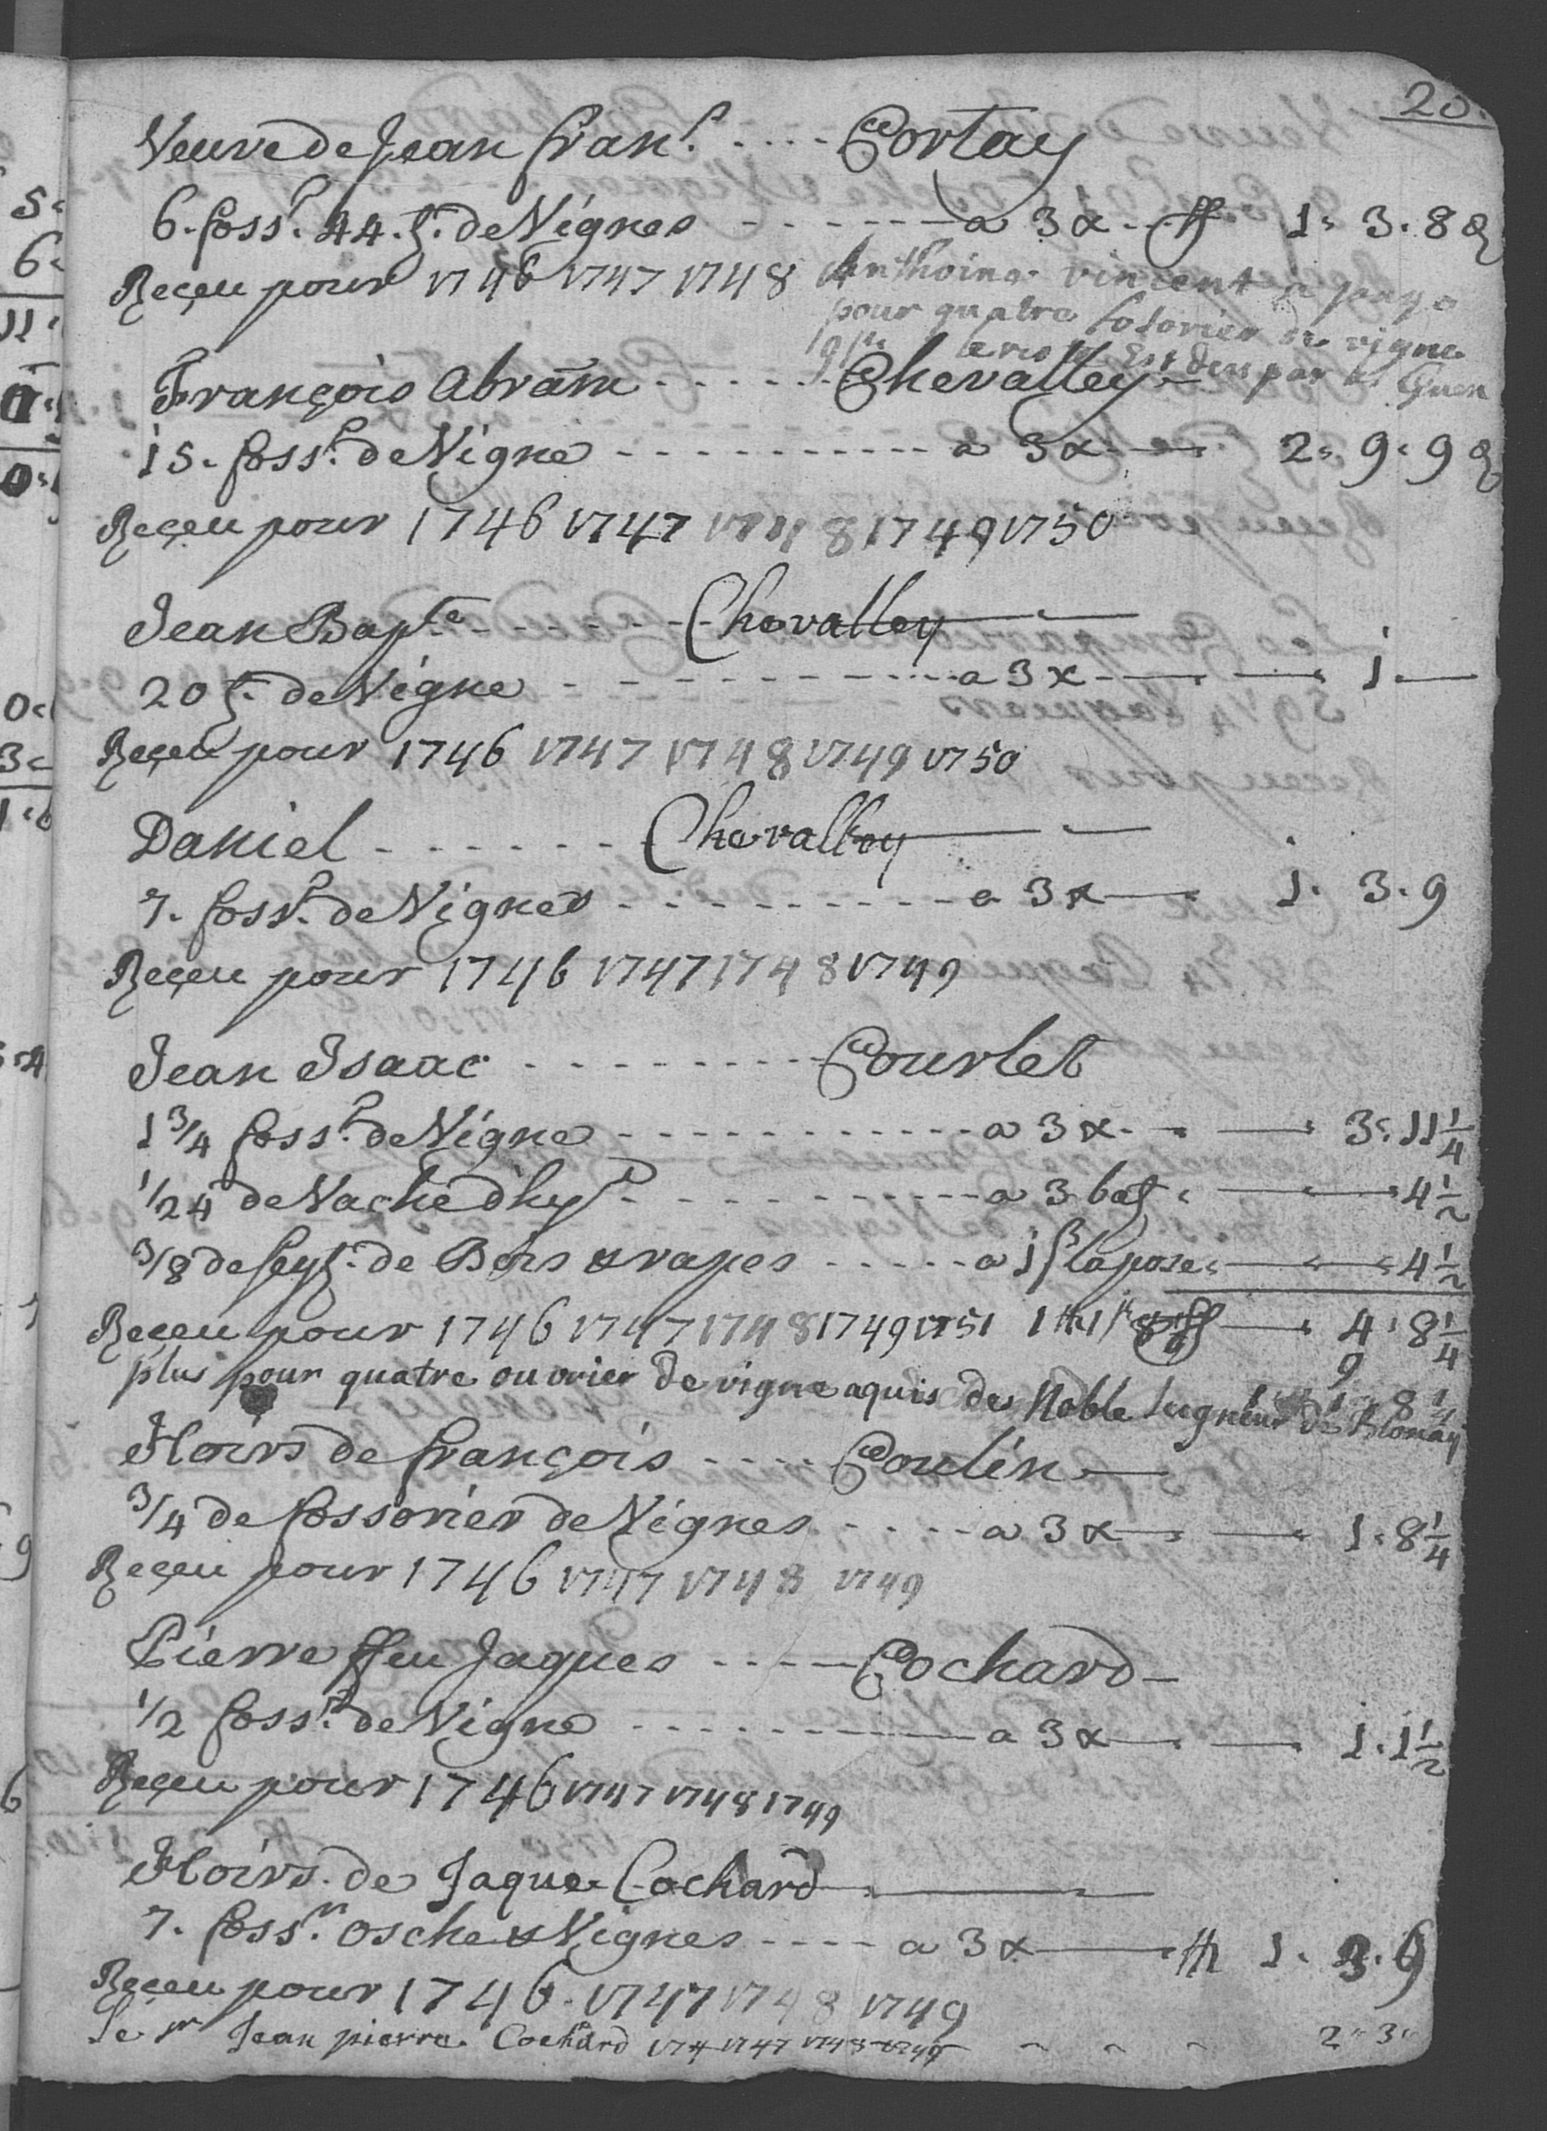 20.
Veuve de Jean Franˢ. .... Cortay
6. foss.ʳ 44. t. de Vignes - - - - - - a 3 x. ff 1. 3. 8 &
Reçeu pour 1746 1747 1748 Anthoine vincent a paye
pour quatre fosorier de vigne
le reste Est deu par
François Abram ...... Chevalley
15. foss.ʳ de Vigne - - - - - - - - - a 3 x 2. 9. 9 &
Reçeu pour 1746 1747 1748 1749 1750
Jean Bapᵗᵉ - - - - - - Chevalley
20 t. de Vigne - - - - - - - - - a 3 x 1.
Reçeu pour 1746 1747 1748 1749 1750
Daniel - - - - - - Chevalley
7. foss.ʳ de Vignes - - - - - - - - - a 3 x 1. 3. 9
Reçeu pour 1746 1747 1748 1749
Jean Isaac - - - - - - - Courlet
1 3/4 foss.ʳ de Vigne - - - - - - - - - a 3 x 3. 11 1/4
1/24 de Vache d'hyˢ. - - - - - - - - - a 3 batz 4 1/2
3/8 de seyt. de Bois & rapes ..... a 1 ß la pose 4 1/2
Reçeu pour 1746 1747 1748 1749 1751 ff 4. 8 1/4
9
plus pour quatre ouvrier de vigne aquis des Noble Seigneur de Blonay 8 1/4
Hoirs de François .... Coulin
3/4 de fossorier de Vignes .... a 3 x 1. 8 1/4
Reçeu pour 1746 1747 1748 1749
Pierre ffeu Jaques .... Cochard
1/2 foss.ʳ de Vigne - - - - - - a 3 x 1. 1 1/2
Reçeu pour 1746 1747 1748 1749
Hoirs. de Jaque Cochard
7. foss.ʳˢ osche & Vignes - - - - a 3 x ff 1. 3. 9
Reçeu pour 1746. 1747 1748 1749
Le sʳ Jean pierre Cochard 174 1747 1748 1749 2 3